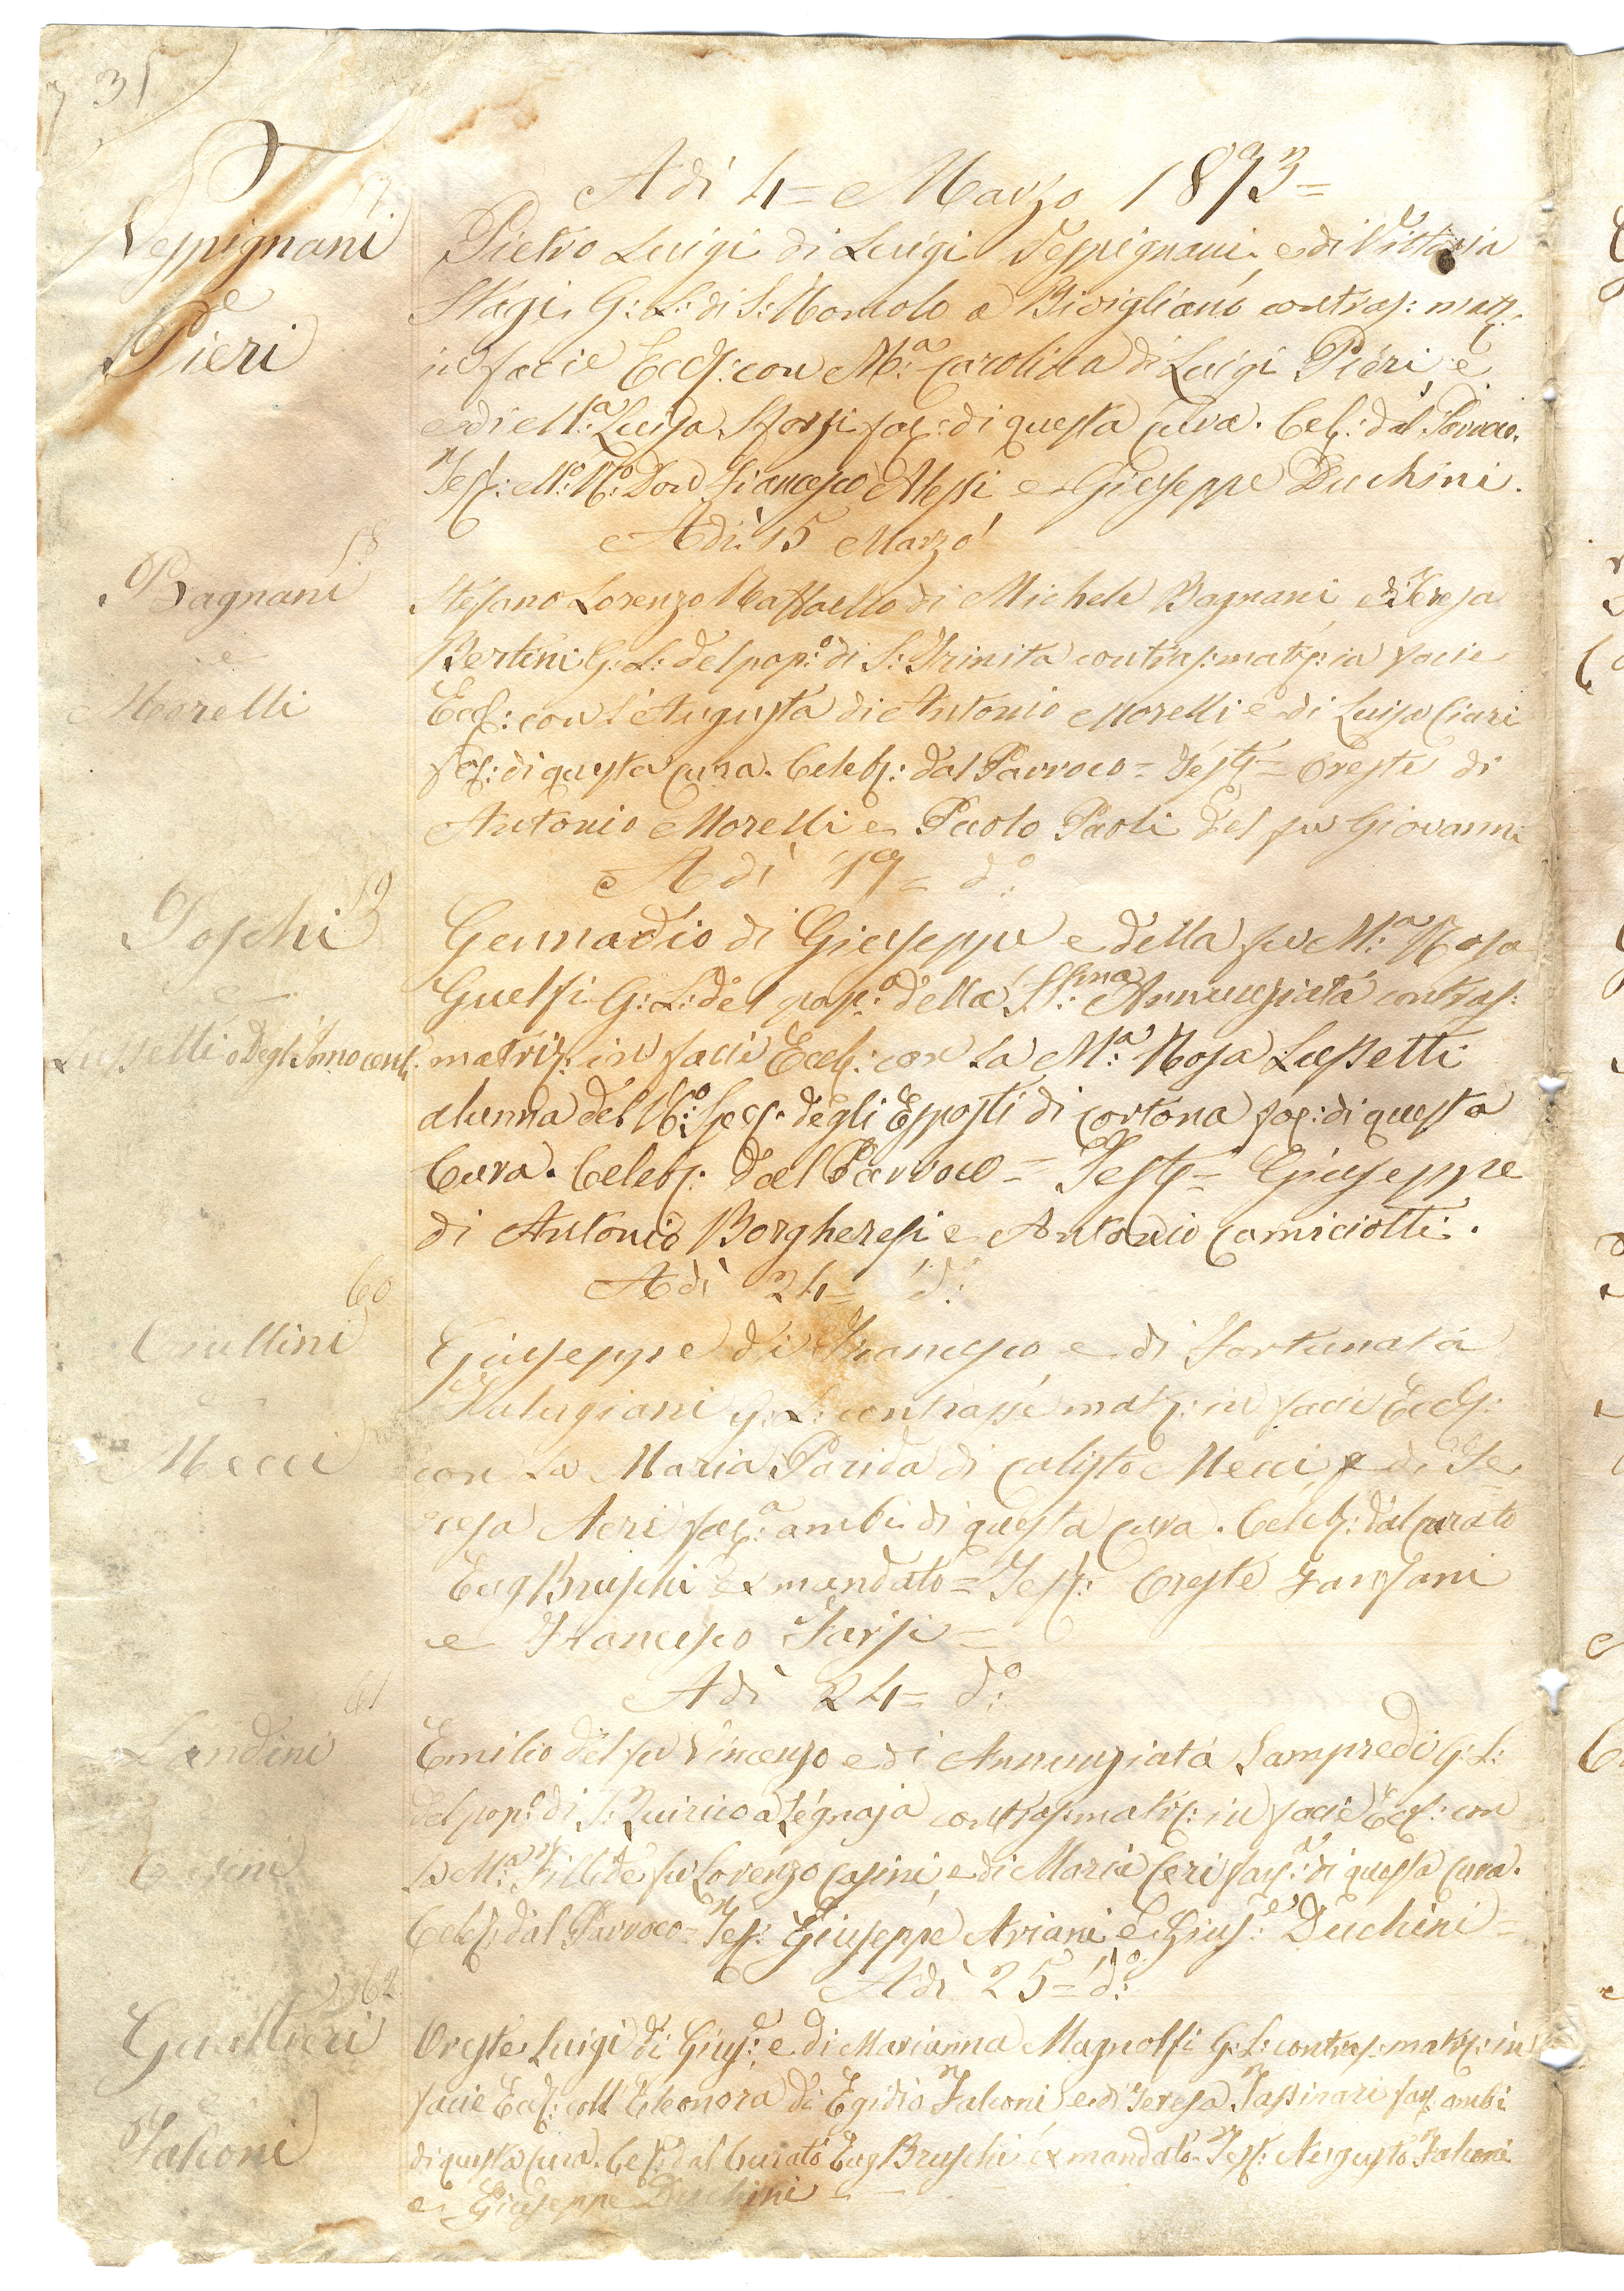 31
Adì 4= Marzo 1893=
17.
Seppignani
e
Pieri
Pietro Luigi di Luigi Seppignani e di Vittoria
Stagi G: L: di S: Romolo a Bivigliano contras: matr.
in facie Eccl: con M.a Carolina di Luigi Pieri e
e di M.a Luisa Sforzi fac: di questa Cura. Cel: dal Parroco.
Test: M.o R.o Don Francesco Alessi e Giuseppe Duchini.
Adì 15 Marzo
18
Bagnani
e
Morelli
Stefano Lorenzo Raffaello di Michele Bagnani e di Teresa
Bertini G: L: del pop:o di S: Trinita contras: matr: in facie
Eccl: con l'Augusta di Antonio Morelli e di Luisa Ciari
fac: di questa Cura. Celeb: dal Parroco = Test = Oreste di
Antonio Morelli e Paolo Paoli del fu Giovanni
Adì 19= d.o
19
Poschi
e
Lussetti o Degl'Innocenti
Gennadio di Giuseppe e della fu M:a Rosa
Guelfi G: L: del pop:o della SS:ma Annunziata contras:
matrim: in facie Eccl: con la M:a Rosa Lussetti
alunna del R:o Sped. degli Esposti di Cortona fac: di questa
Cura. Celeb: dal Parroco = Test = Giuseppe
di Antonio Borgheresi e Antonio Camiciotti.
Adì 24= d:o
60
e
Mecci
Giuseppe di Francesco e di Fortunata
G: L: contrasse matr: in facie Eccl:
con la Maria Parida di Calisto Mecci e di Te=
resa Neri fac:a ambi di questa Cura. Celeb: dal Curato
Eug Bruschi ex mandato = Test: Oreste Fansani
e Francesco Farsi =
Adì 24= d:o
61
Landini
e
Casini
Emilio del fu Vincenzo e di Annunziata Lampredi G: L:
del pop:o di S: Quirico a Legnaja contras: matr: in facie Eccl: con
la M:a Fillide fu Lorenzo Casini e di Maria Ceri fac:a di questa Cura.
Celeb: dal Parroco = Test: Giuseppe Ariani e Gius:e Duchini =
Adì 25= d:o
62
Gualtieri
e
Falconi
Oreste Luigi di Gius:e e di Marianna Magnolfi G: L: contras: matr: in
facie Eccl: coll' Eleonora di Egidio Falconi e di Teresa Tassinari fac: ambi
di questa Cura. Cel: dal Curato Eug Bruschi ex mandato. Test: Augusto Falconi
e Giuseppe Duchini =